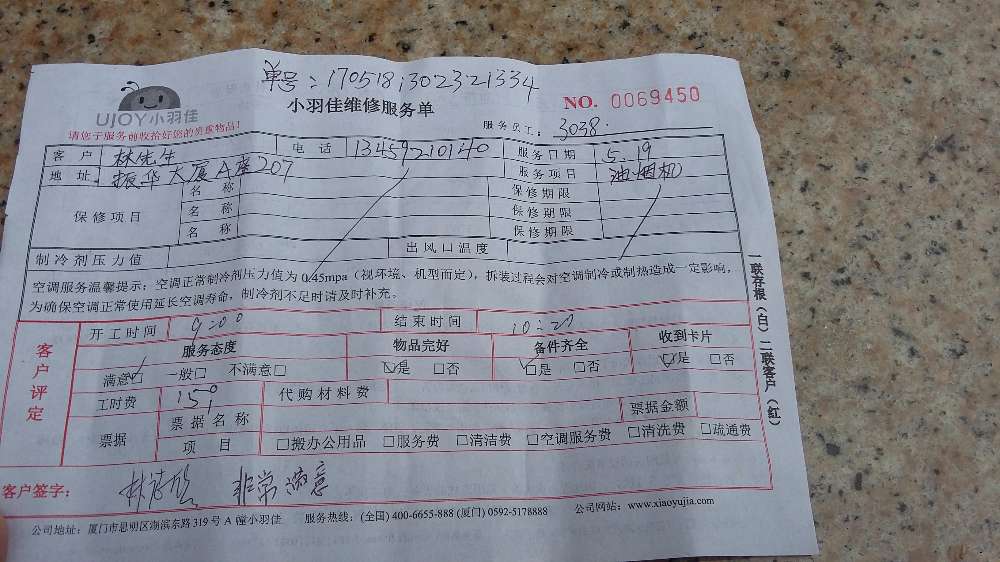 单号：170518130232​1334
UJOY小羽佳
小羽佳维修服务单
NO. 0069450
请您于服务前收拾好您的贵重物品！
服务员工：3038
客户 林先生 电话 13459210140 服务日期 5.19
地址 振华大厦A座207 服务项目 油烟机
保修项目 名称 保修期限
名称 保修期限
名称 保修期限
制冷剂压力值 出风口温度
空调服务温馨提示：空调正常制冷剂压力值为0.45mpa（视环境、机型而定），拆装过程会对空调制冷或制热造成一定影响，
为确保空调正常使用延长空调寿命，制冷剂不足时请及时补充。
客户评定
开工时间 9:00 结束时间 10:27
服务态度 物品完好 备件齐全 收到卡片
满意□ 一般□ 不满意□ □是 □否 □是 □否 □是 □否
工时费 150 代购材料费
票据 票据名称 票据金额
项目 □搬办公用品 □服务费 □清洁费 □空调服务费 □清洗费 □疏通费
客户签字： 非常满意
公司地址：厦门市思明区湖滨东路319号A幢小羽佳 服务热线：(全国) 400-6655-888 (厦门) 0592-5178888 公司网站：www.xiaoyujia.com
一联存根（白）二联客户（红）